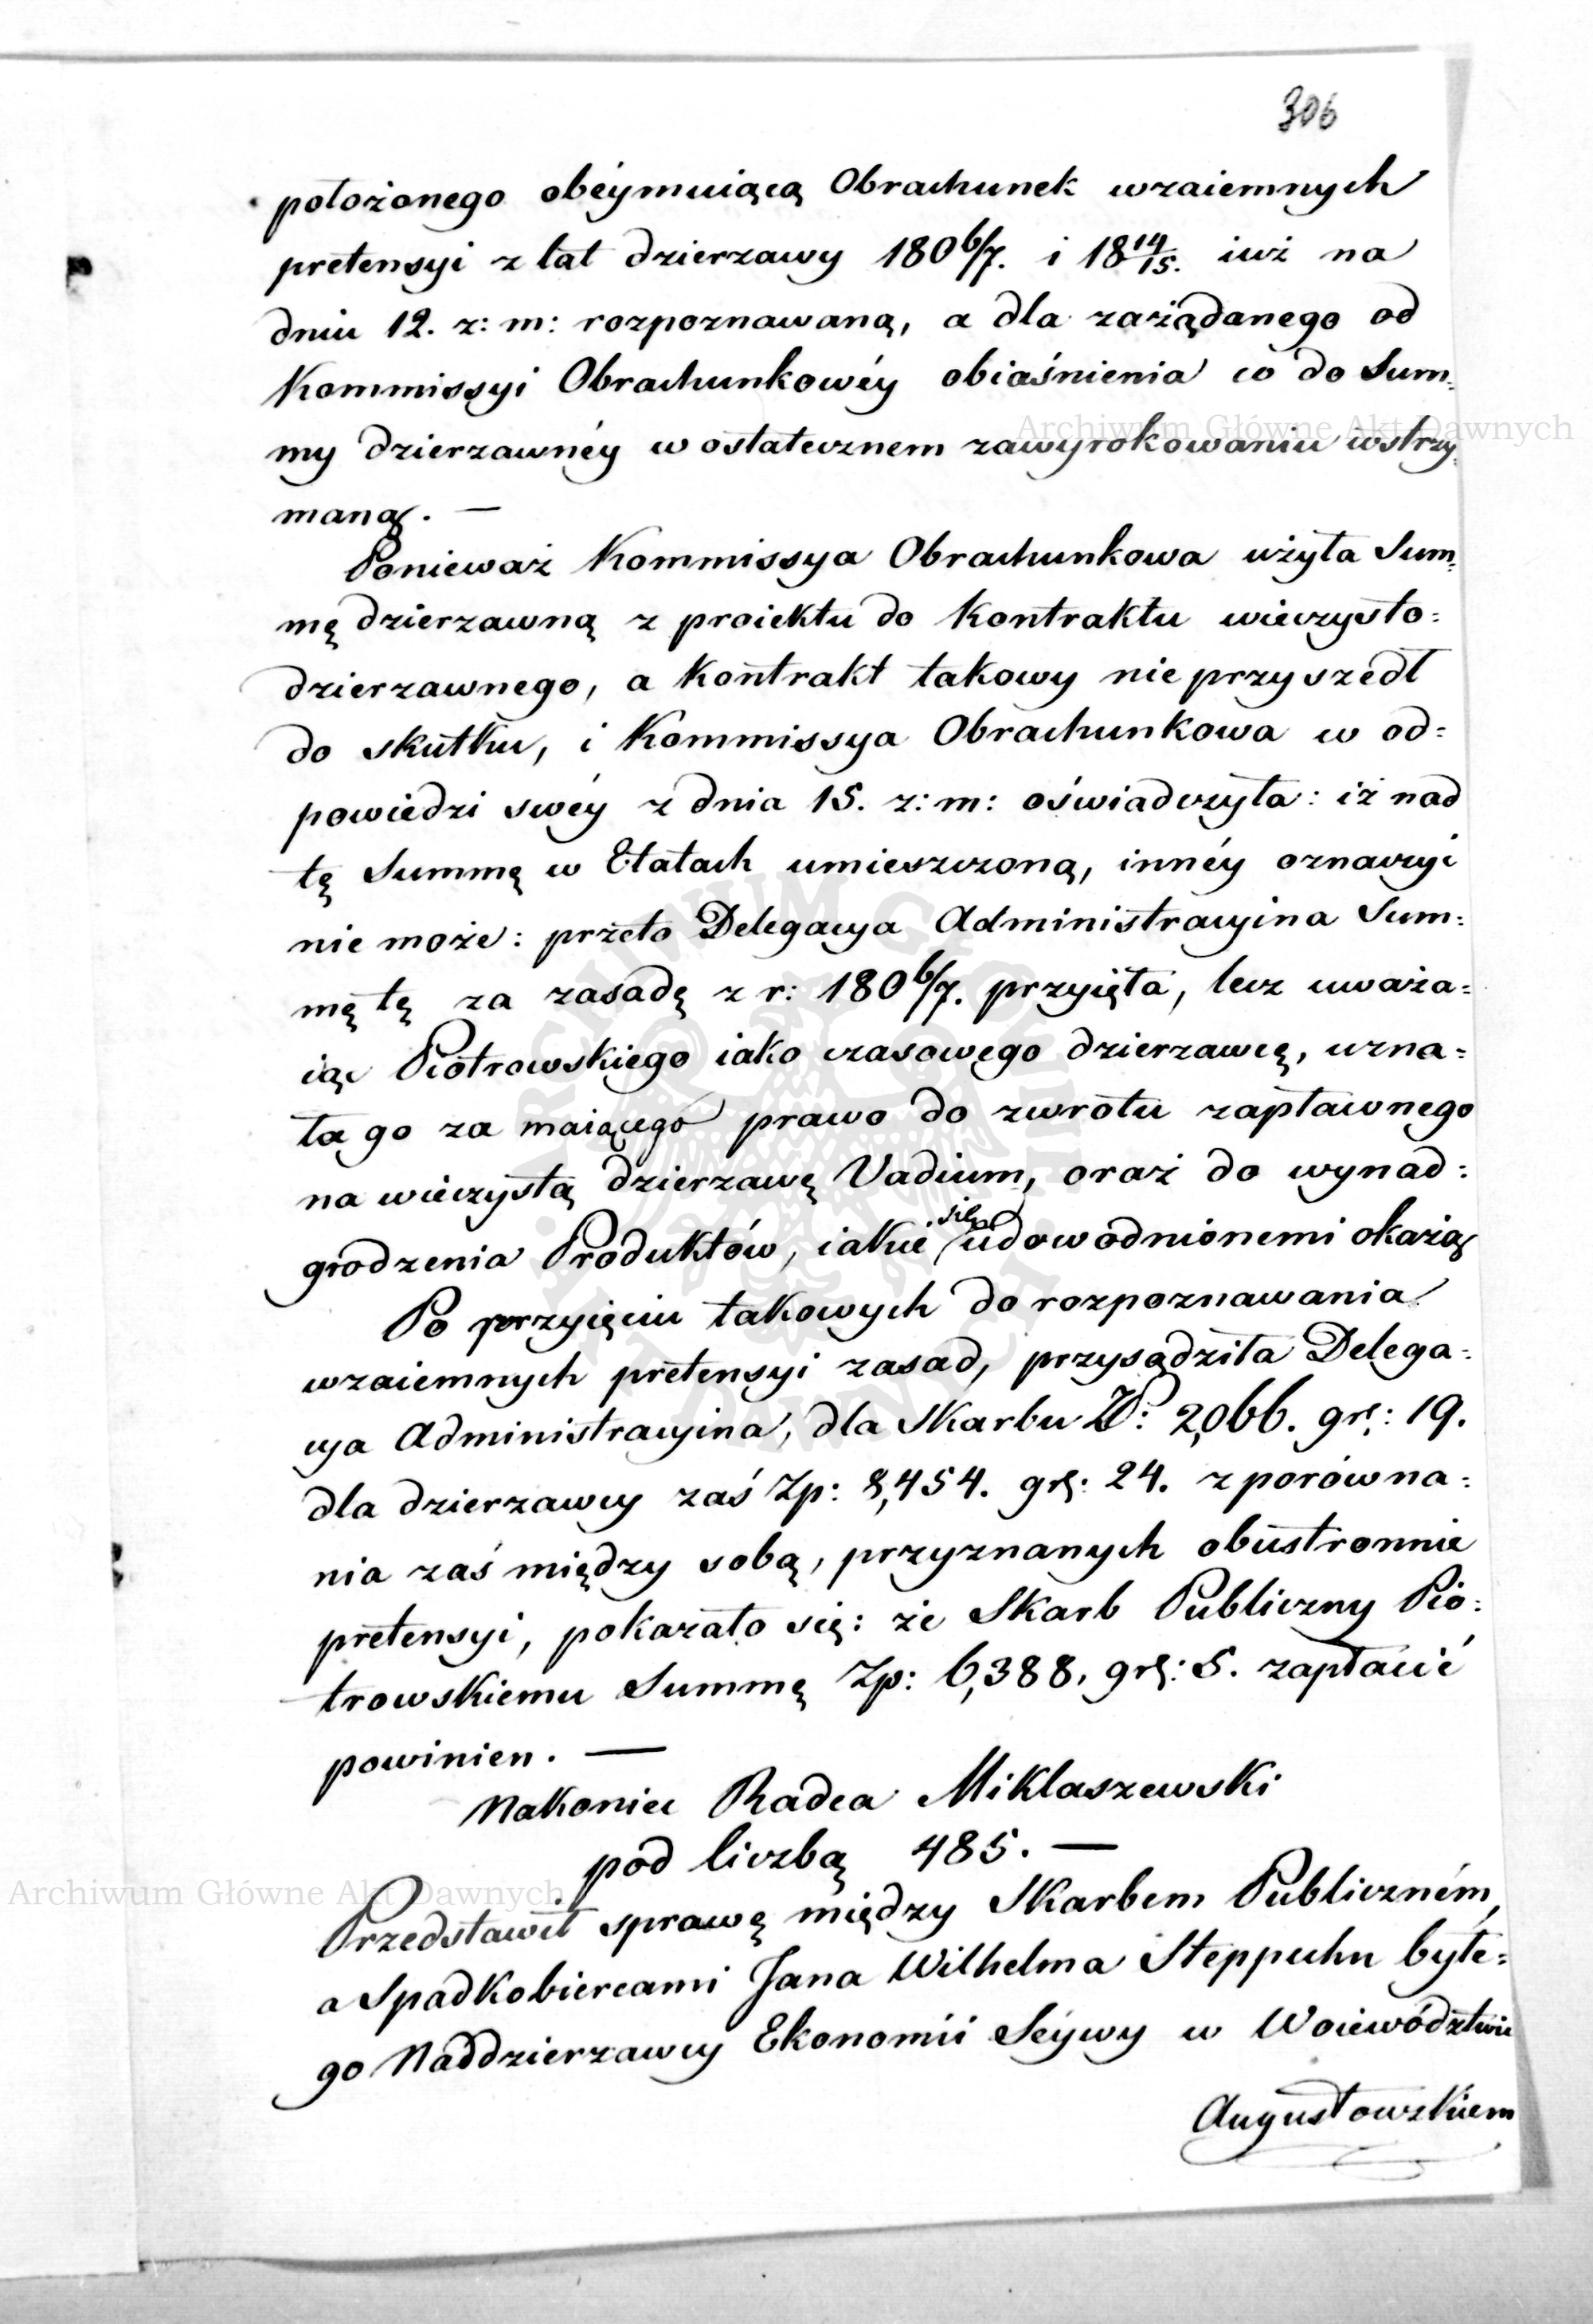 306
położonego obéymuiącą Obrachunek wzaiemnych
pretensyi z lat dzierzawy 180 6/7. i 18 14/15. iuż na
dniu 12. z: m: rozpoznawaną, a dla zażądanego od
Kommissyi Obrachunkowéy obiaśnienia co do Sum=
my dzierzawnéy w ostatecznem zawyrokowaniu wstrzy=
maną. —
Ponieważ Kommissya Obrachunkowa użyła Sum=
mę dzierzawną z proiektu do Kontraktu wieczysto=
dzierzawnego, a Kontrakt takowy nie przyszedł
do skutku, i Kommissya Obrachunkowa w od=
powiedzi swéy z dnia 15. z: m: oświadczyła: iż nad
tę Summę w Etatach umieszczoną, innéy oznaczyć
nie może: przeto Delegacya Administracyina Sum=
mę tę za zasadę z r: 180 6/7. przyięła, lecz uważa=
iąc Piotrowskiego iako czasowego dzierzawcę, uzna=
ła go za maiącego prawo do zwrotu zapłaconego
na wieczystą dzierzawę Vadium, oraz do wynad=
grodzenia Produktów, iakie się udowodnionemi okażą
Po przyięciu takowych do rozpoznawania
wzaiemnych pretensyi zasad, przysądziła Delega=
cya Administracyina, dla Skarbu Zł: 2,066. gr: 19.
dla dzierzawcy zaś Zp: 8,454. gr: 24. z porówna=
nia zaś między sobą, przyznanych obustronnie
pretensyi, pokazało się: że Skarb Publiczny Pio=
trowskiemu Summę Zp: 6,388. gr: 5. zapłacić
powinien. —
Nakoniec Radca Miklaszewski
pod liczbą 485. —
Przedstawił sprawę między Skarbem Publiczném,
a Spadkobiercami Jana Wilhelma Steppuhn byłe=
go Naddzierzawcy Ekonomii Séywy w Woiewództwie
Augustowskiem
Archiwum Główne Akt Dawnych
Archiwum Główne Akt Dawnych